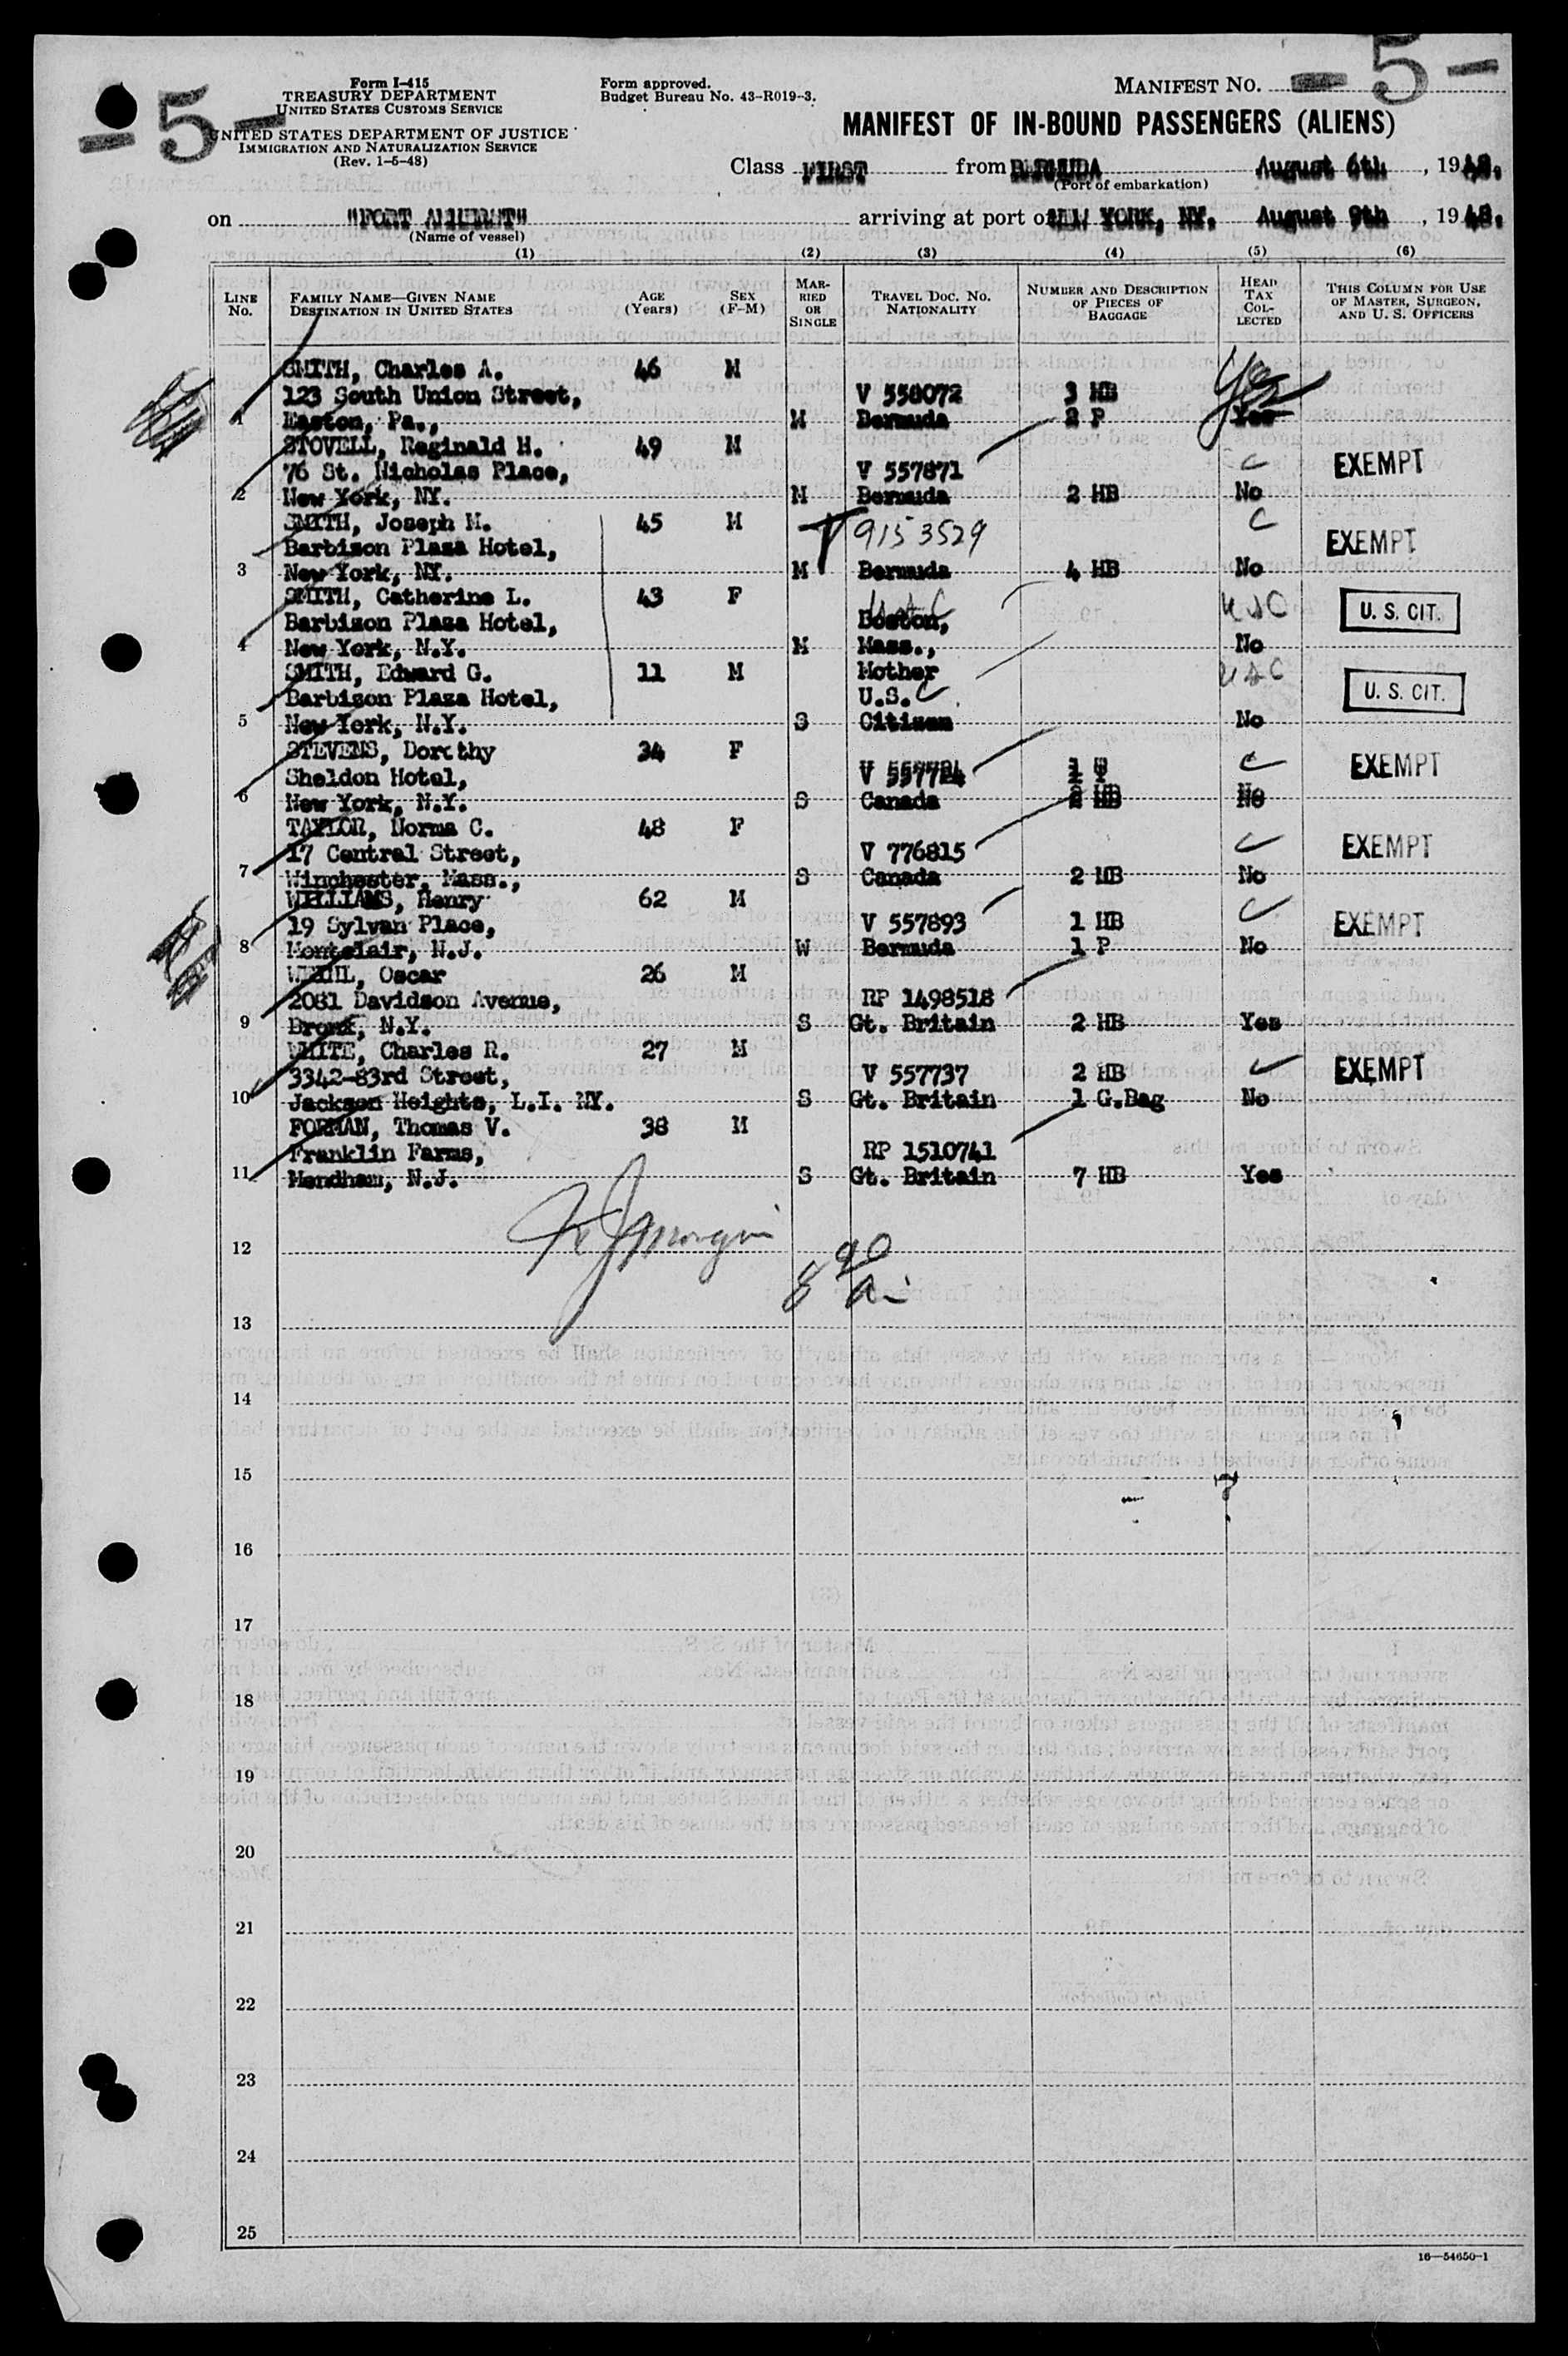 Form I-415
TREASURY DEPARTMENT
UNITED STATES CUSTOMS SERVICE
UNITED STATES DEPARTMENT OF JUSTICE
IMMIGRATION AND NATURALIZATION SERVICE
(Rev. 1-5-48)
Form approved.
Budget Bureau No. 43-R019-3.
MANIFEST NO. - 5 -
- 5 -
MANIFEST OF IN-BOUND PASSENGERS (ALIENS)
Class FIRST from BERMUDA August 6th, 1948.
(Port of embarkation)
on "FORT AMHERST" arriving at port of NEW YORK, NY. August 9th, 1948.
(Name of vessel)
(1) (2) (3) (4) (5) (6)
LINE No.
FAMILY NAME—GIVEN NAME
DESTINATION IN UNITED STATES
AGE (Years)
SEX (F-M)
MARRIED OR SINGLE
TRAVEL DOC. NO. NATIONALITY
NUMBER AND DESCRIPTION OF PIECES OF BAGGAGE
HEAD TAX COLLECTED
THIS COLUMN FOR USE OF MASTER, SURGEON, AND U. S. OFFICERS
SMITH, Charles A. 46 M
123 South Union Street, V 558072 3 HB Yes
1 Easton, Pa., M Bermuda 2 P Yes
STOVELL, Reginald H. 49 M
76 St. Nicholas Place, V 557871 EXEMPT
2 New York, NY. M Bermuda 2 HB No
SMITH, Joseph M. 45 M T 9153529
Barbizon Plaza Hotel, EXEMPT
3 New York, NY. M Bermuda 4 HB No
SMITH, Catherine L. 43 F USC USC
Barbizon Plaza Hotel, Boston, U. S. CIT.
4 New York, N.Y. M Mass., No
SMITH, Edward G. 11 M Mother USC
Barbizon Plaza Hotel, U.S. U. S. CIT.
5 New York, N.Y. S Citizen No
STEVENS, Dorothy 34 F
Sheldon Hotel, V 557724 1 T EXEMPT
6 New York, N.Y. S Canada 2 HB No
TAYLOR, Norma C. 48 F
17 Central Street, V 776815 EXEMPT
7 Winchester, Mass., S Canada 2 HB No
WILLIAMS, Henry 62 M
19 Sylvan Place, V 557893 1 HB EXEMPT
8 Montclair, N.J. W Bermuda 1 P No
Oscar 26 M
2081 Davidson Avenue, RP 1498518
9 Bronx, N.Y. S Gt. Britain 2 HB Yes
WHITE, Charles R. 27 M
3342-83rd Street, V 557737 2 HB EXEMPT
10 Jackson Heights, L.I. NY. S Gt. Britain 1 G.Bag No
FORMAN, Thomas V. 38 M
Franklin Farms, RP 1510741
11 Mendham, N.J. S Gt. Britain 7 HB Yes
12
13
14
15
16
17
18
19
20
21
22
23
24
25
16—54650-1